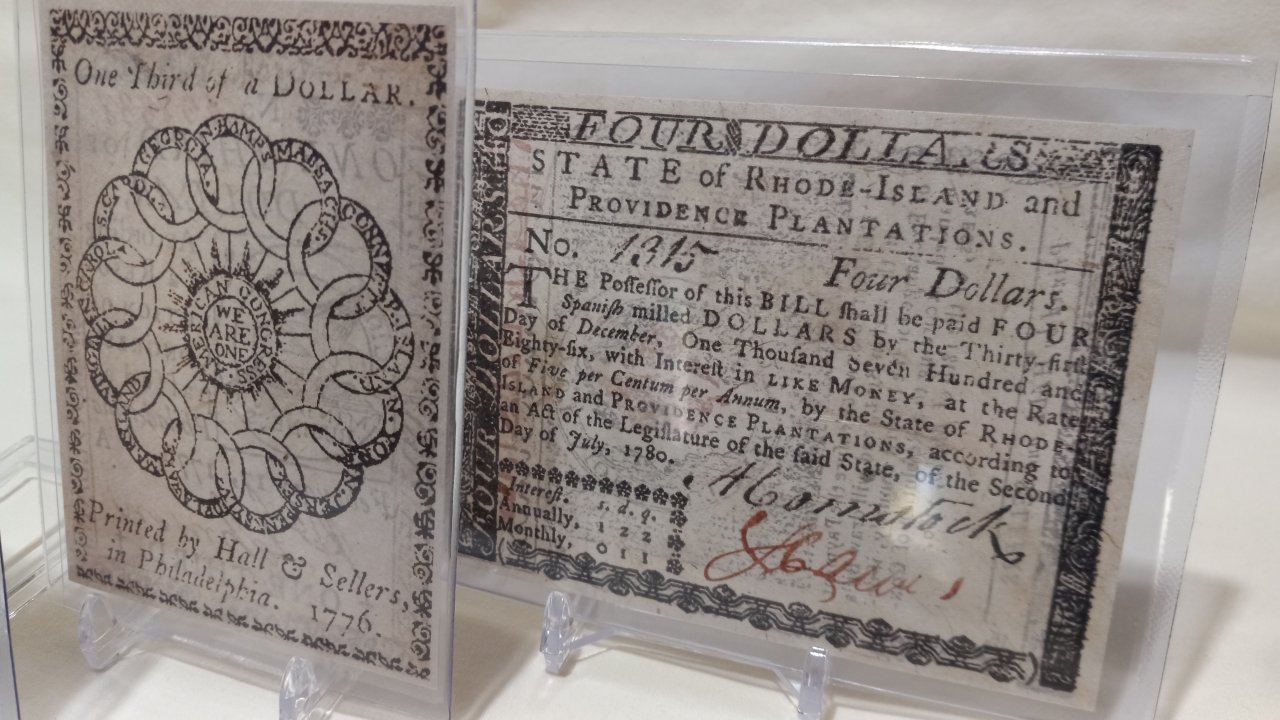 One Third of a DOLLAR.
N. HAMPS
MASSACHS
CONNECT
R. ISLAND
N. YORK
N. JERSEY
PENNSY
DELAWARE
MARYLAND
VIRGINIA
N. CAROL
S. CAROL
GEORGIA
AMERICAN CONGRESS
WE
ARE
ONE
Printed by Hall & Sellers,
in Philadelphia. 1776.
FOUR DOLLARS
FOUR DOLLARS
STATE of RHODE-ISLAND and
PROVIDENCE PLANTATIONS.
No. 1315 Four Dollars.
THE Poſſeſſor of this BILL ſhall be paid FOUR
Spaniſh milled DOLLARS by the Thirty-firſt
Day of December, One Thouſand Seven Hundred and
Eighty-ſix, with Intereſt in LIKE MONEY, at the Rate
of Five per Centum per Annum, by the State of RHODE-
ISLAND and PROVIDENCE PLANTATIONS, according to
an Act of the Legiſlature of the ſaid State, of the Second
Day of July, 1780.
Intereſt. s. d. q.
Annually, 1 2 2
Monthly, 0 1 1